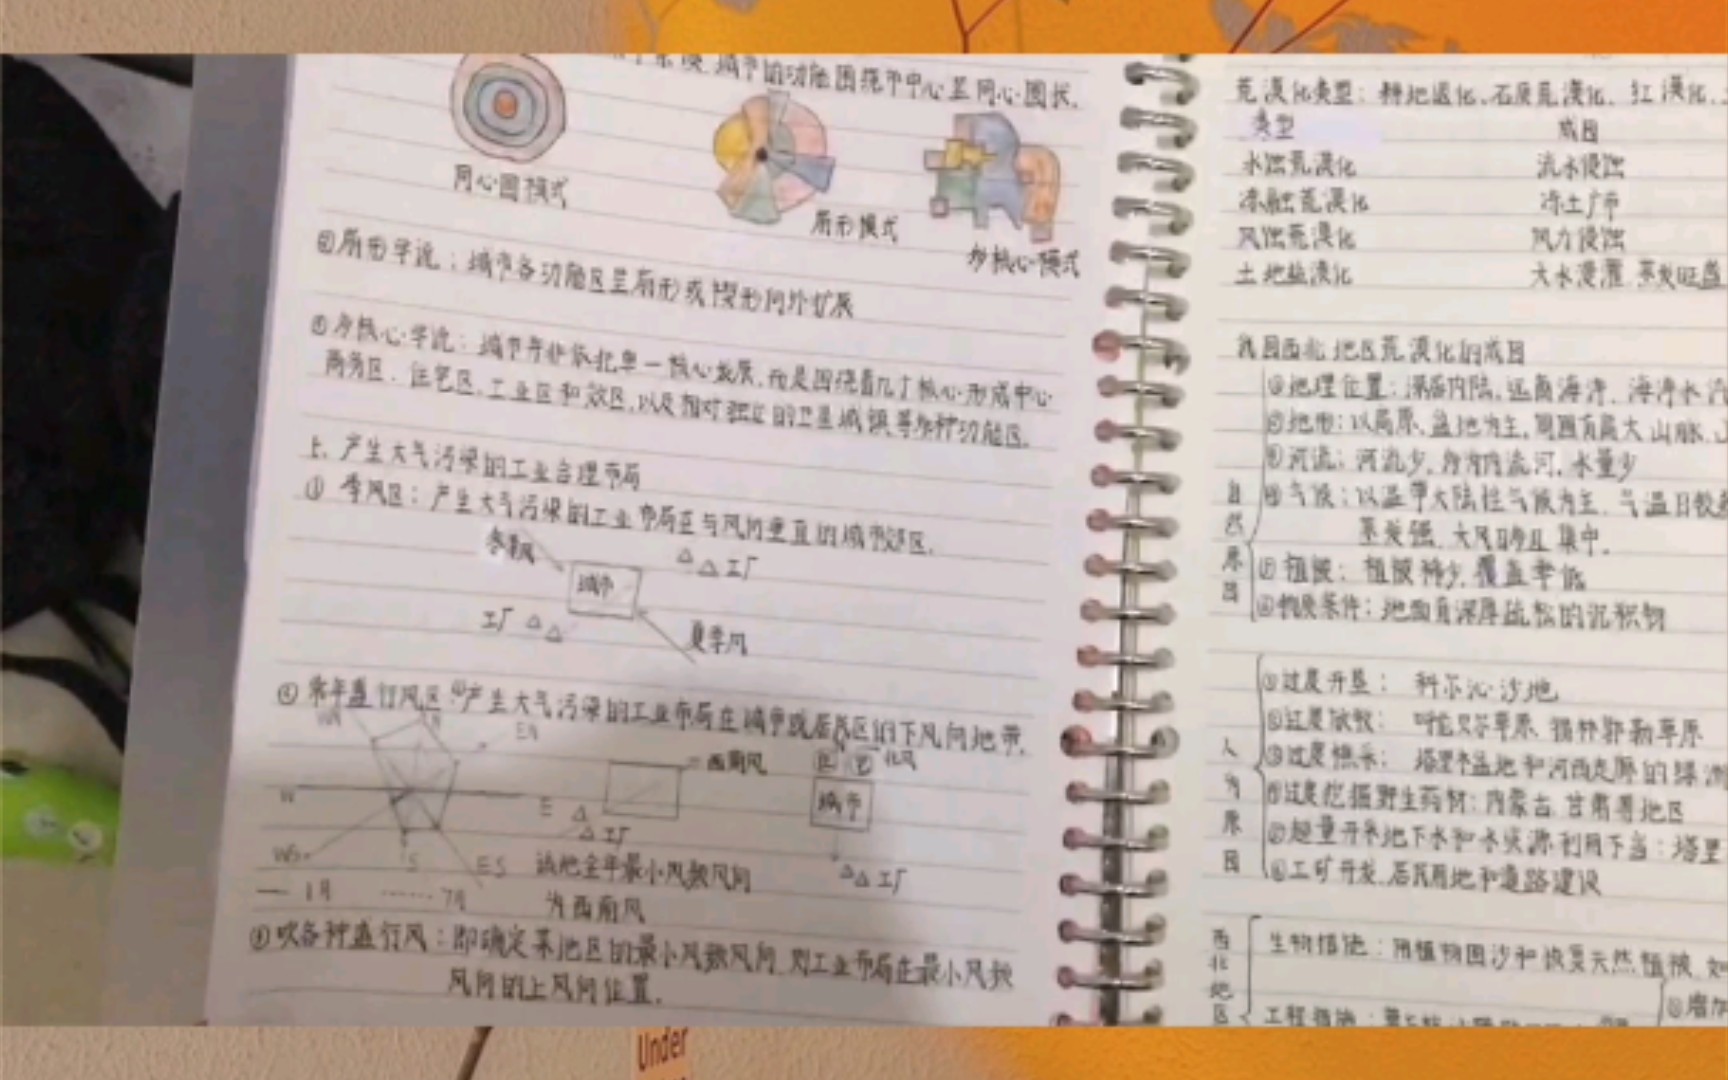 城市的功能围绕市中心呈同心圆状.
同心圆模式
扇形模式
多核心模式
②扇形学说：城市各功能区呈扇形或楔形向外扩展
③多核心学说：城市并非依托单一核心发展,而是围绕着几个核心形成中心
商务区、住宅区、工业区和郊区,以及相对独立的卫星城镇等各种功能区.
上、产生大气污染的工业合理布局
① 季风区：产生大气污染的工业布局在与风向垂直的城市郊区.
冬季风
城市
△△工厂
工厂△△
夏季风
② 常年盛行风区:产生大气污染的工业布局在城市或居民区的下风向地带.
WN N EN
西南风
北风
W E
城市
△△工厂
WS S ES
该地全年最小风频风向
为西南风
△△工厂
— 1月 ······ 7月
③吹各种盛行风：即确定某地区的最小风频风向,则工业布局在最小风频
风向的上风向位置.
荒漠化类型：耕地退化、石质荒漠化、红漠化、
类型 成因
水蚀荒漠化 流水侵蚀
冻融荒漠化 冻土广布
风蚀荒漠化 风力侵蚀
土地盐渍化 大水漫灌,蒸发旺盛
我国西北地区荒漠化的成因
自然原因
①地理位置：深居内陆,远离海洋,海洋水汽
②地形：以高原、盆地为主,周围有高大山脉,
③河流：河流少,多为内流河,水量少
④气候：以温带大陆性气候为主,气温日较差
蒸发强,大风日多且集中.
⑤植被：植被稀少,覆盖率低
⑥物质条件：地面有深厚疏松的沉积物
人为原因
①过度开垦： 科尔沁沙地
②过度放牧： 呼伦贝尔草原、锡林郭勒草原
③过度樵采： 塔里木盆地和河西走廊的绿洲
④过度挖掘野生药材：内蒙古、甘肃等地区
⑤超量开采地下水和水资源利用不当：塔里
⑥工矿开发、居民用地和道路建设
西北地区
生物措施：用植物固沙和恢复天然植被,如
工程措施：
①增加
Under